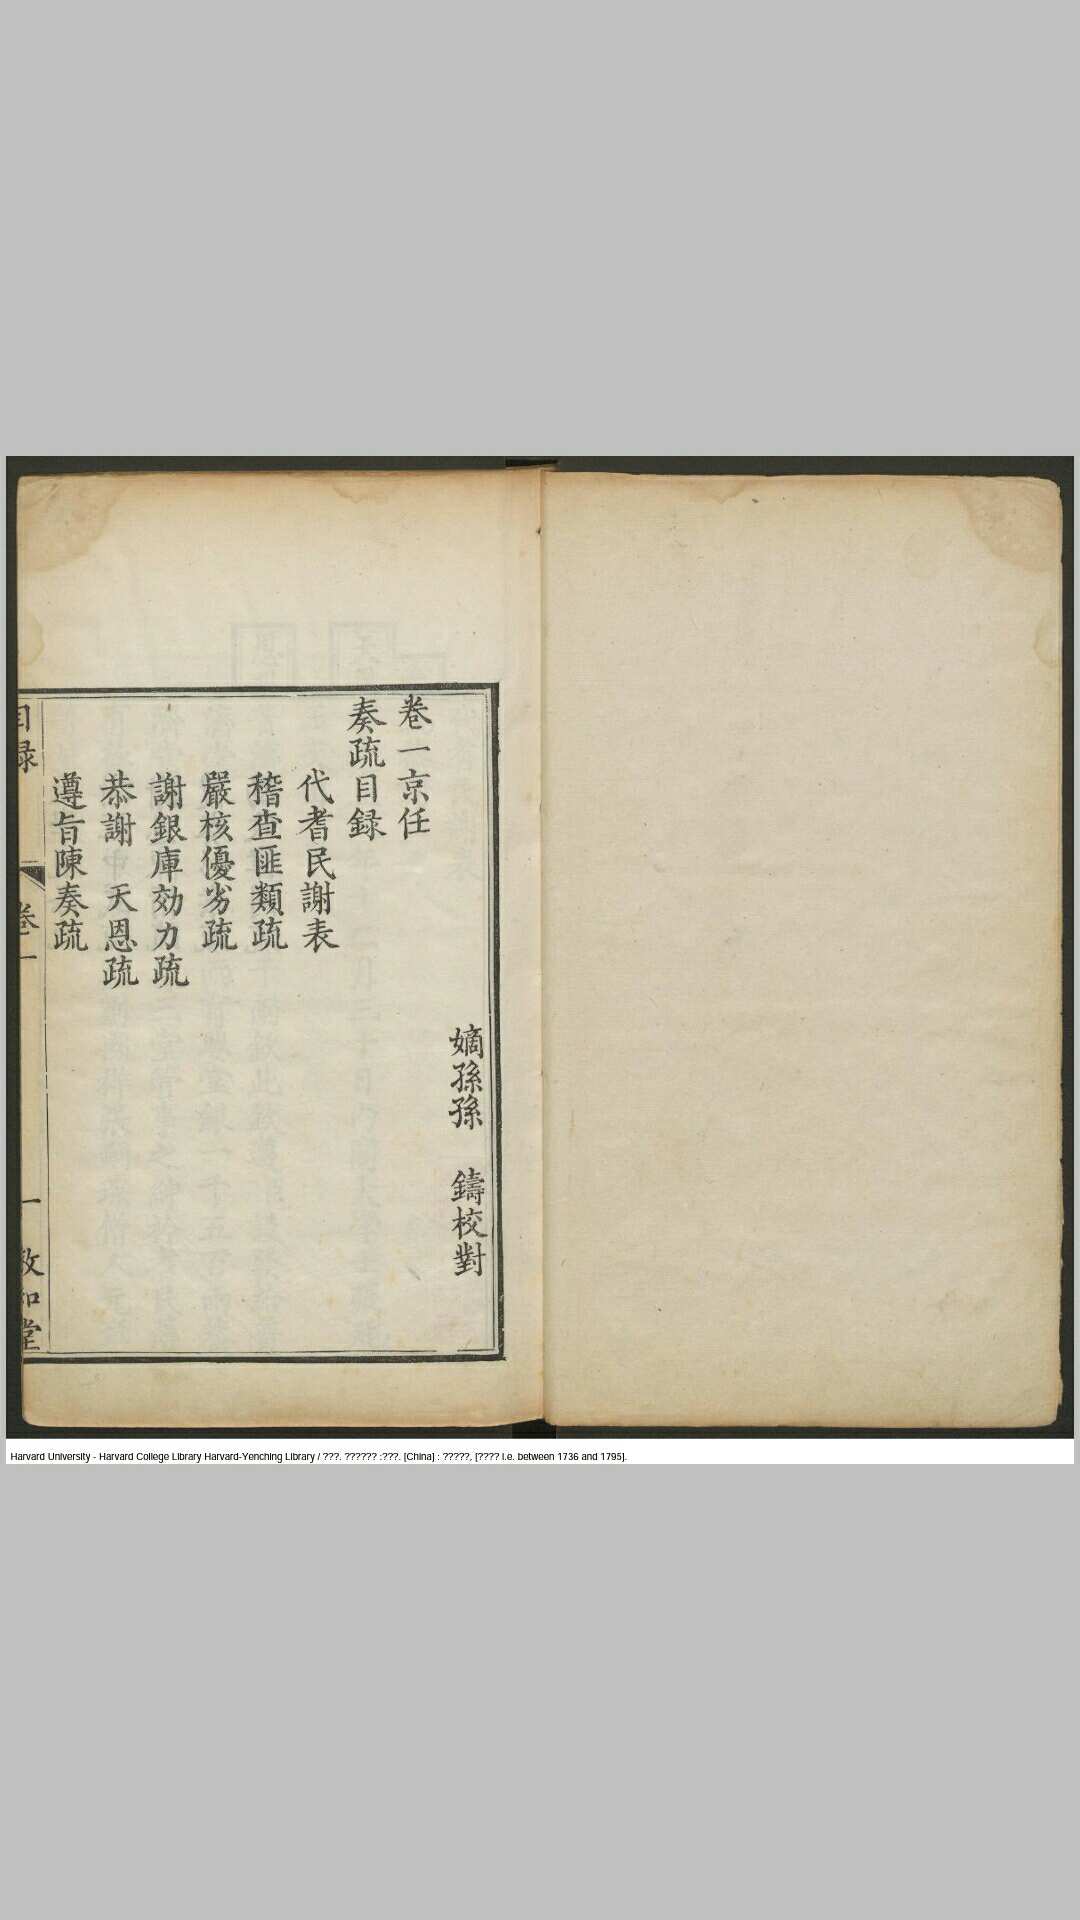 嫡孫孫 鑄校對
卷一京任
奏疏目録
代耆民謝表
稽查匪類疏
嚴核優劣疏
謝銀庫効力疏
恭謝 天恩疏
遵旨陳奏疏
目録 卷一 一 敦和堂
Harvard University - Harvard College Library Harvard-Yenching Library / ???. ?????? :???. [China] : ?????, [???? i.e. between 1736 and 1795].